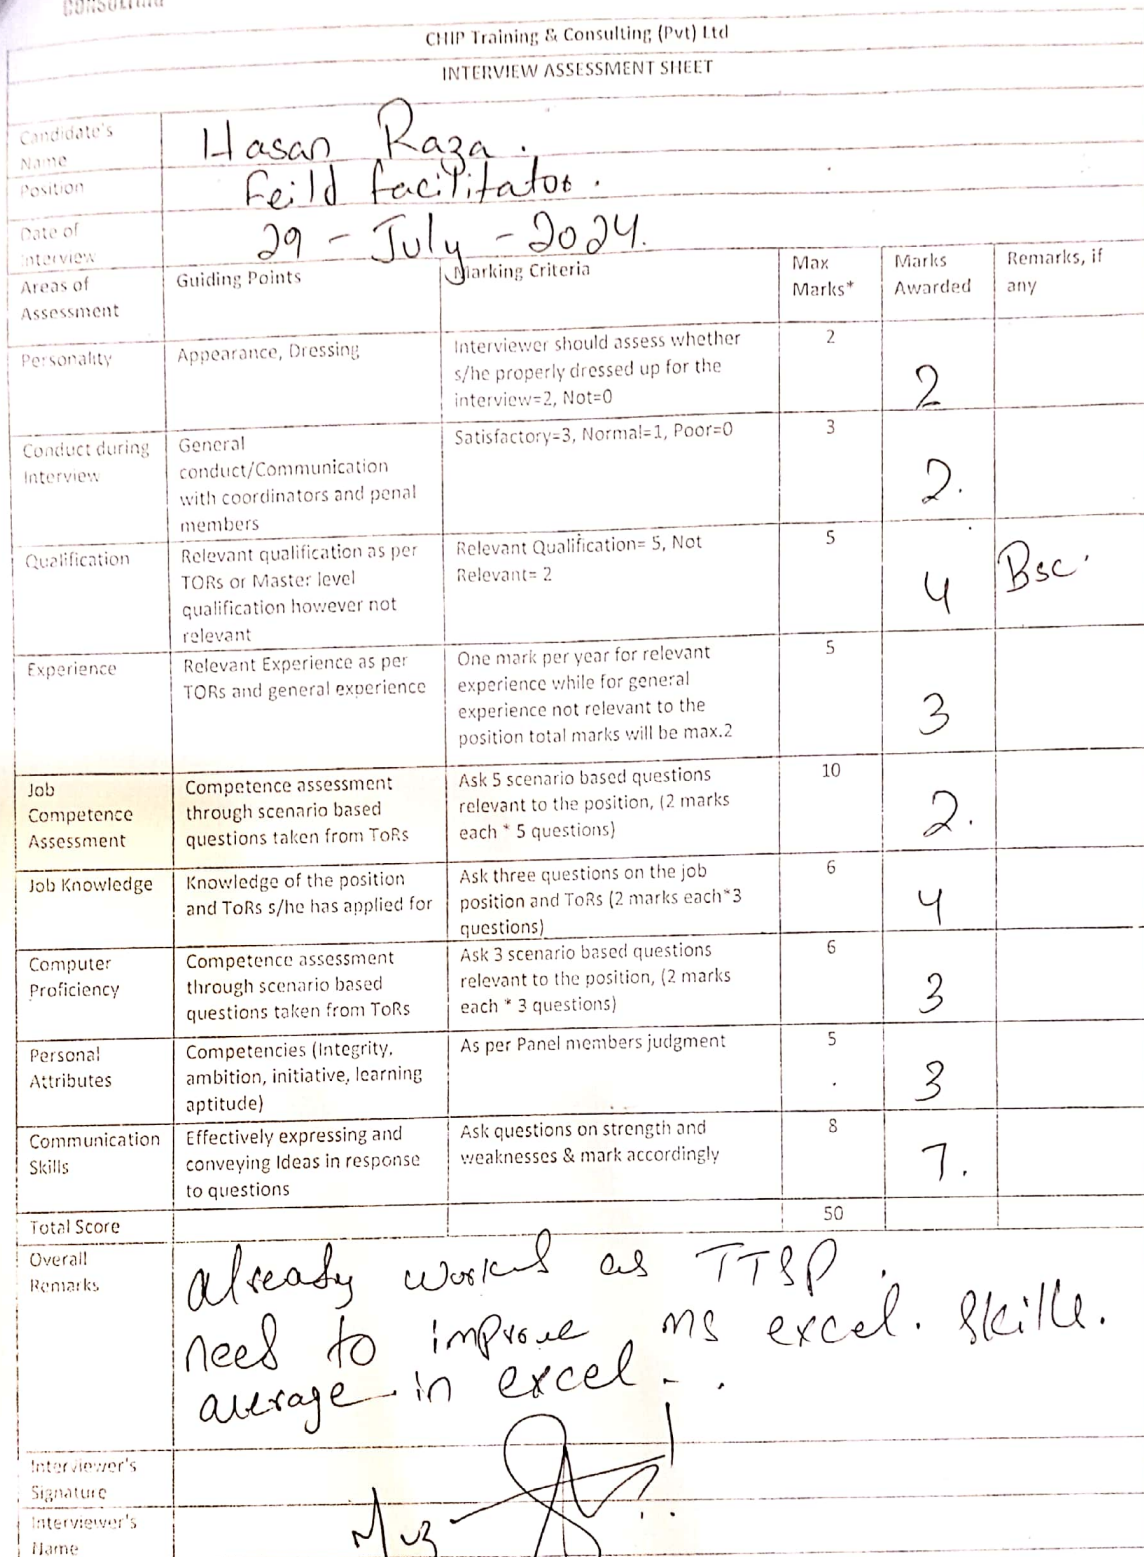 CONSULTING
CHIP Training & Consulting (Pvt) Ltd
INTERVIEW ASSESSMENT SHEET
Candidate's
Name
Hasan Raza.
Position
Feild facilitator.
Date of
Interview
29 - July - 2024.
Areas of
Assessment
Guiding Points
Marking Criteria
Max
Marks*
Marks
Awarded
Remarks, if
any
Personality
Appearance, Dressing
Interviewer should assess whether
s/he properly dressed up for the
interview=2, Not=0
2
2
Conduct during
Interview
General
conduct/Communication
with coordinators and penal
members
Satisfactory=3, Normal=1, Poor=0
3
2.
Qualification
Relevant qualification as per
TORs or Master level
qualification however not
relevant
Relevant Qualification= 5, Not
Relevant= 2
5
4
Bsc.
Experience
Relevant Experience as per
TORs and general experience
One mark per year for relevant
experience while for general
experience not relevant to the
position total marks will be max.2
5
3
Job
Competence
Assessment
Competence assessment
through scenario based
questions taken from ToRs
Ask 5 scenario based questions
relevant to the position, (2 marks
each * 5 questions)
10
2.
Job Knowledge
Knowledge of the position
and ToRs s/he has applied for
Ask three questions on the job
position and ToRs (2 marks each*3
questions)
6
4
Computer
Proficiency
Competence assessment
through scenario based
questions taken from ToRs
Ask 3 scenario based questions
relevant to the position, (2 marks
each * 3 questions)
6
3
Personal
Attributes
Competencies (Integrity,
ambition, initiative, learning
aptitude)
As per Panel members judgment
5
3
Communication
Skills
Effectively expressing and
conveying Ideas in response
to questions
Ask questions on strength and
weaknesses & mark accordingly
8
7.
Total Score
50
Overall
Remarks
already worked as TTSP.
need to improve ms excel. skills.
average in excel.
Interviewer's
Signature
Interviewer's
Name